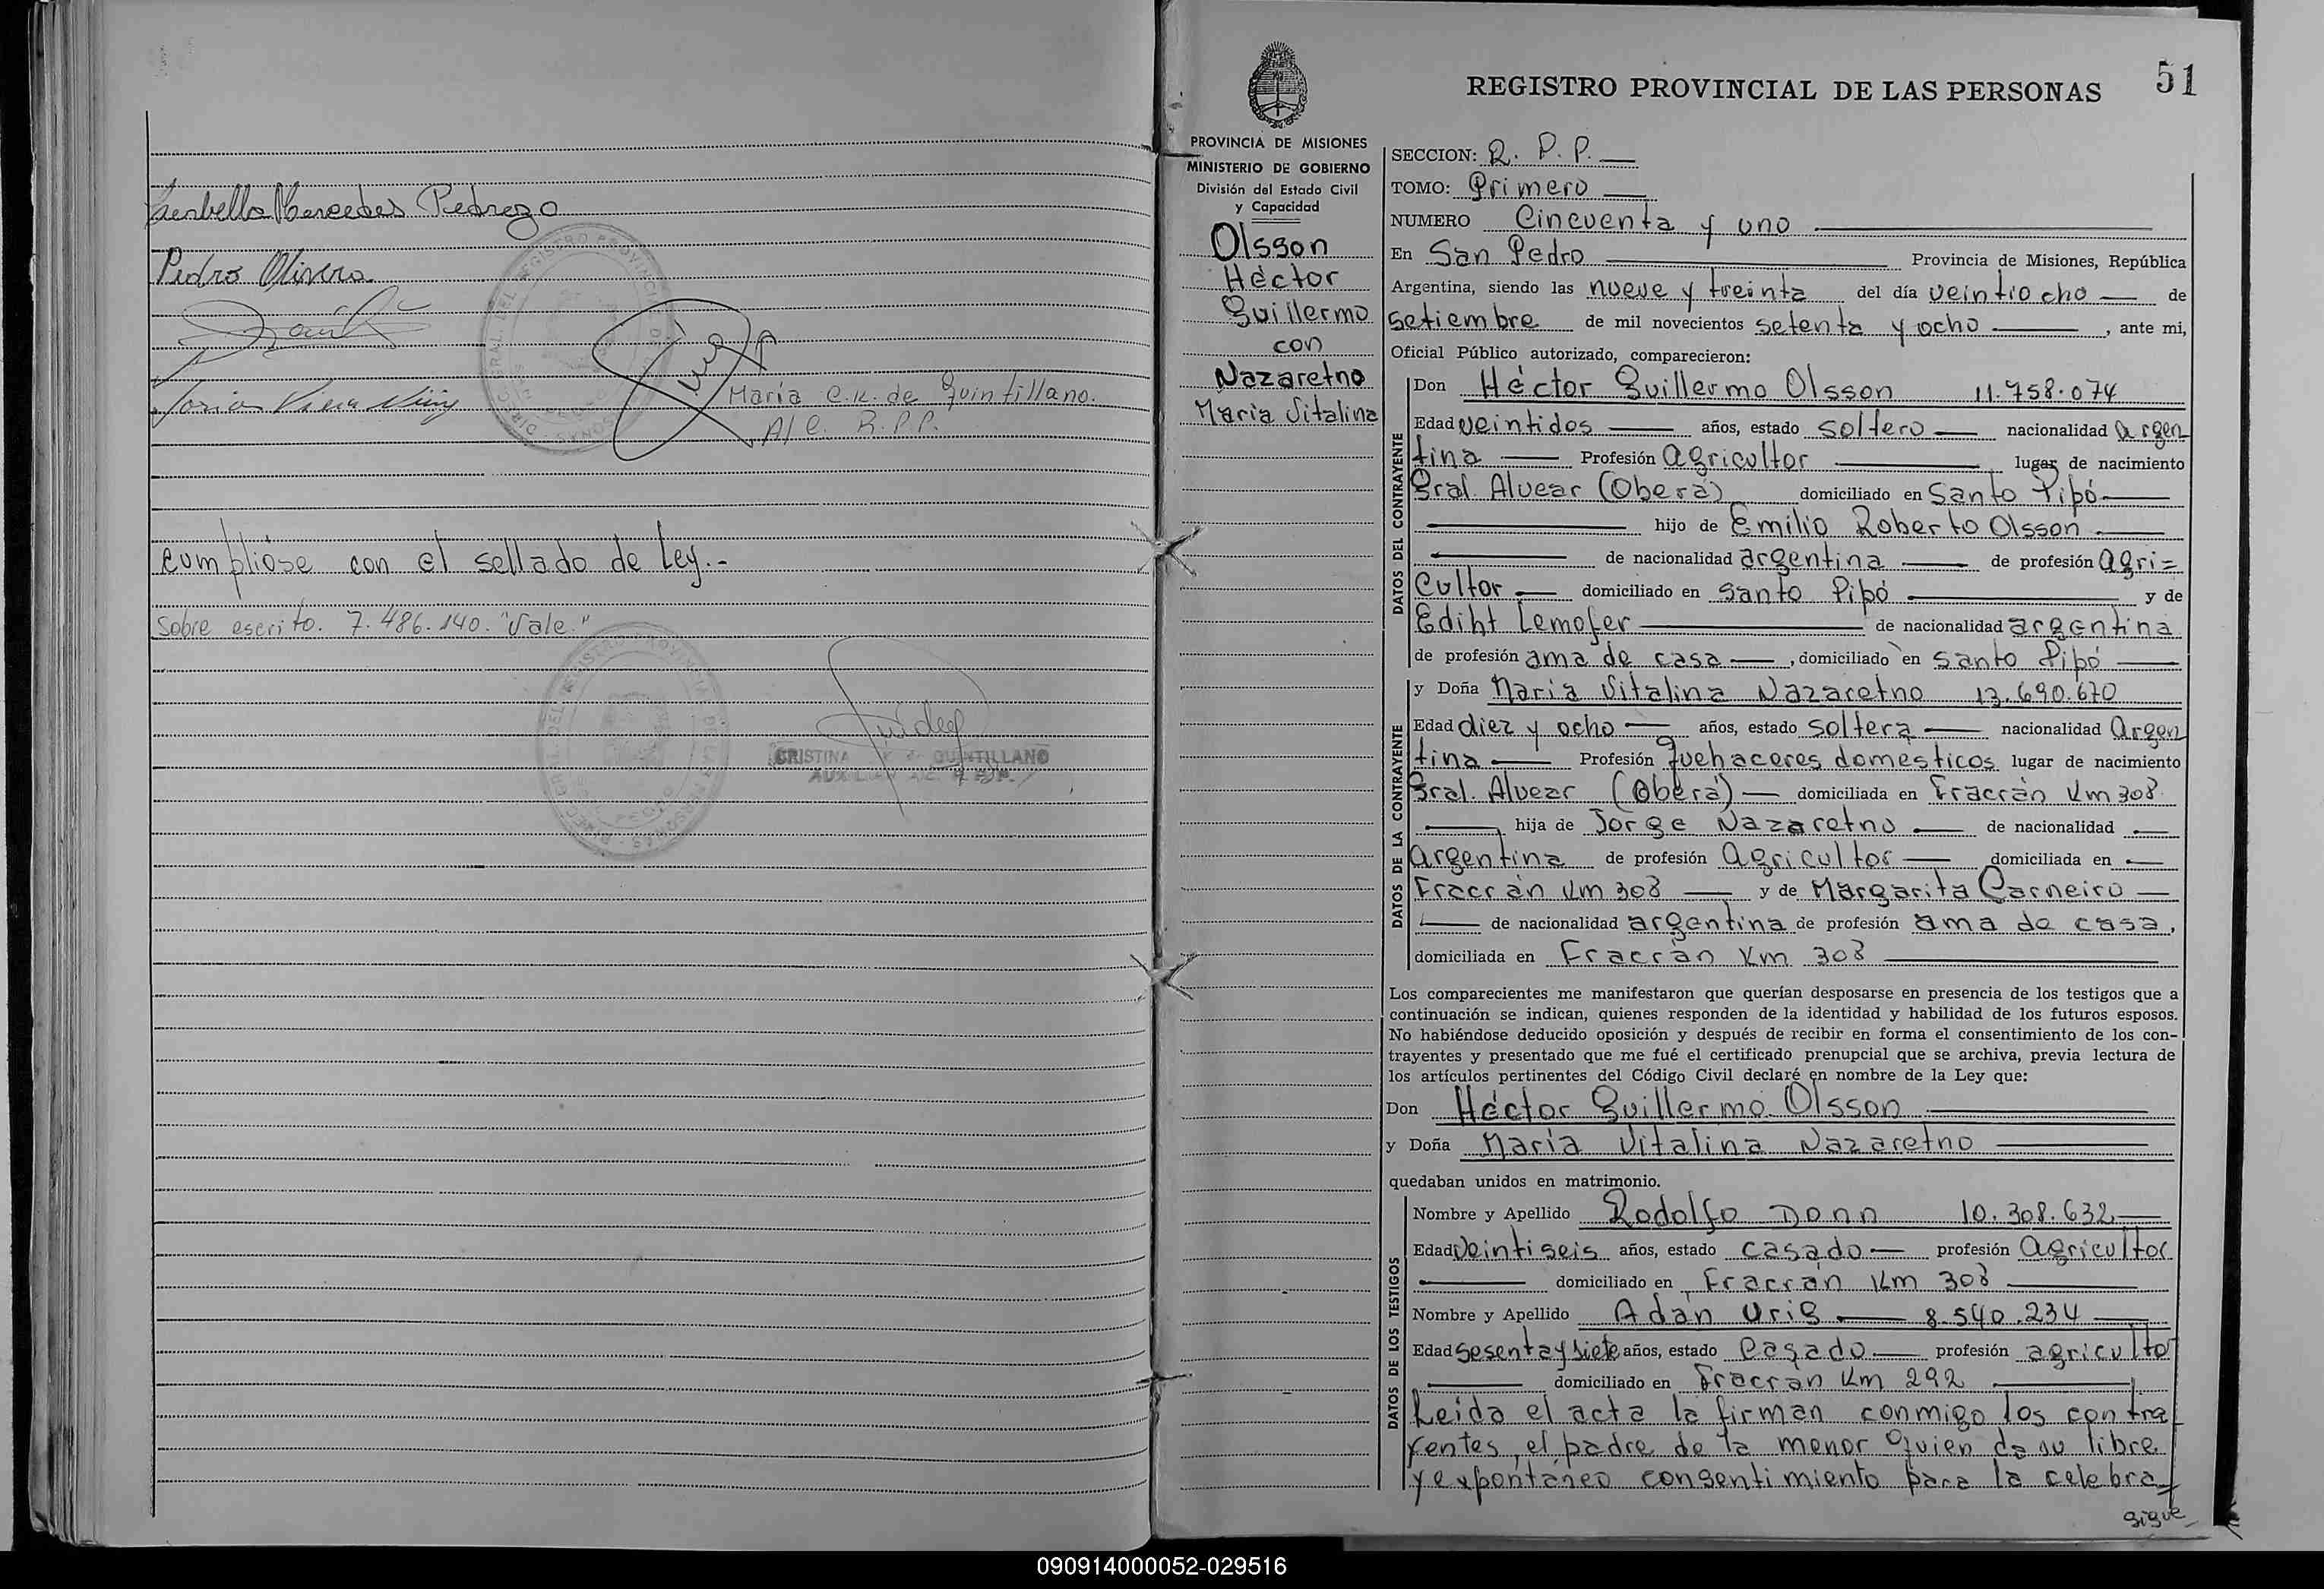 Mercedes Pedrozo
Pedro Olivera
María C. K. de Quintillano.
A/C. R.P.P.
Cumplióse con el sellado de Ley.-
Sobre escrito. 7.486.140. "Vale."
CRISTINA K. de QUINTILLANO
51
REGISTRO PROVINCIAL DE LAS PERSONAS
PROVINCIA DE MISIONES
MINISTERIO DE GOBIERNO
División del Estado Civil
y Capacidad
Olsson
Héctor
Guillermo
con
Nazaretno
María Vitalina
SECCION: R. P. P.
TOMO: Primero
NUMERO Cincuenta y uno
En San Pedro Provincia de Misiones, República
Argentina, siendo las nueve y treinta del día veintiocho de
setiembre de mil novecientos setenta y ocho, ante mi,
Oficial Público autorizado, comparecieron:
DATOS DEL CONTRAYENTE
Don Héctor Guillermo Olsson 11.758.074
Edad veintidos años, estado soltero nacionalidad argen
tina Profesión agricultor lugar de nacimiento
Gral. Alvear (Oberá) domiciliado en Santo Pipó
hijo de Emilio Roberto Olsson
de nacionalidad argentina de profesión agri=
cultor domiciliado en Santo Pipó y de
Ediht Lemofer de nacionalidad argentina
de profesión ama de casa, domiciliado en Santo Pipó
DATOS DE LA CONTRAYENTE
y Doña María Vitalina Nazaretno 13.690.670
Edad diez y ocho años, estado soltera nacionalidad Argen
tina Profesión quehaceres domesticos lugar de nacimiento
Gral. Alvear (Oberá) domiciliada en Fracrán Km 308
hija de Jorge Nazaretno de nacionalidad
argentina de profesión Agricultor domiciliada en
Fracrán Km 308 y de Margarita Carneiro
de nacionalidad argentina de profesión ama de casa,
domiciliada en Fracrán Km 308
Los comparecientes me manifestaron que querían desposarse en presencia de los testigos que a
continuación se indican, quienes responden de la identidad y habilidad de los futuros esposos.
No habiéndose deducido oposición y después de recibir en forma el consentimiento de los con-
trayentes y presentado que me fué el certificado prenupcial que se archiva, previa lectura de
los artículos pertinentes del Código Civil declaré en nombre de la Ley que:
Don Héctor Guillermo Olsson
y Doña María Vitalina Nazaretno
quedaban unidos en matrimonio.
DATOS DE LOS TESTIGOS
Nombre y Apellido Rodolfo Donn 10.308.632
Edad veintiseis años, estado casado profesión agricultor
domiciliado en Fracrán Km 308
Nombre y Apellido Adán Uris 8.540.234
Edad sesenta y siete años, estado casado profesión agricultor
domiciliado en Fracran Km 292
Leida el acta la firman conmigo los contra
yentes, el padre de la menor quien da su libre
y expontáneo consentimiento para la celebra
sigue
090914000052-029516